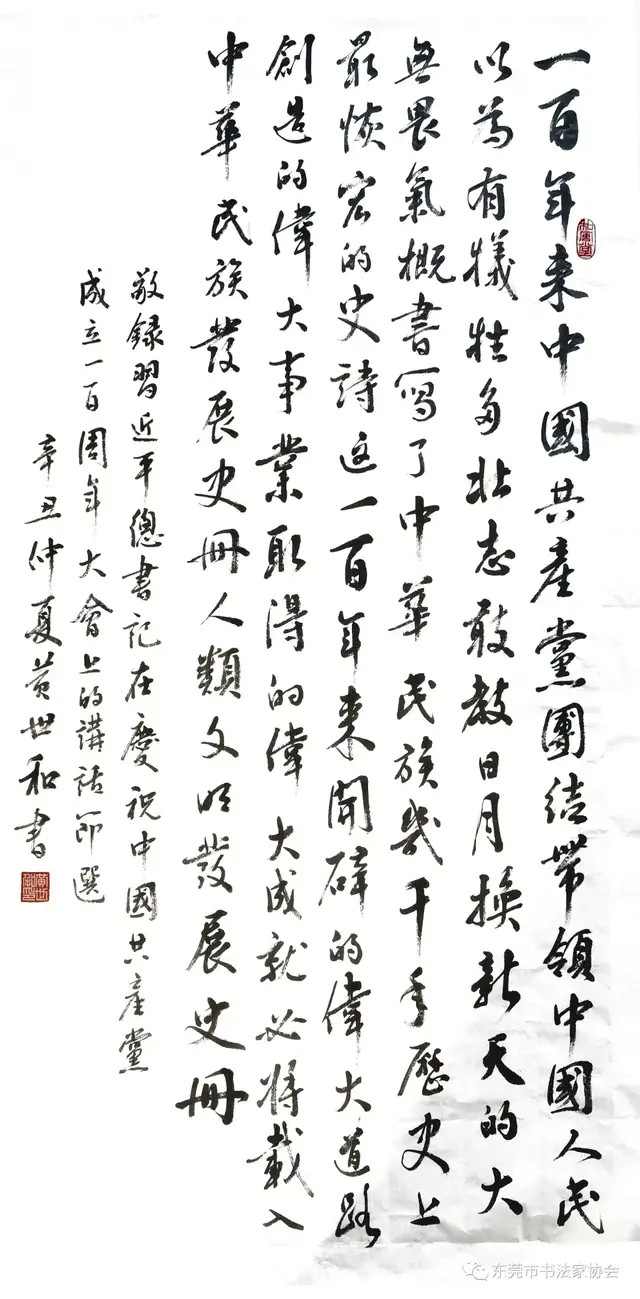 一百年来中國共產黨團结帶領中國人民
以為有犧牲多壮志敢教日月換新天的大
無畏氣概書寫了中華民族幾千年歷史上
最恢宏的史詩这一百年来開辟的偉大道路
創造的偉大事業取得的偉大成就必將載入
中華民族發展史冊人類文明發展史冊
敬錄習近平總書記在慶祝中國共產黨
成立一百周年大會上的講話節選
辛丑仲夏黃世和書
东莞市书法家协会